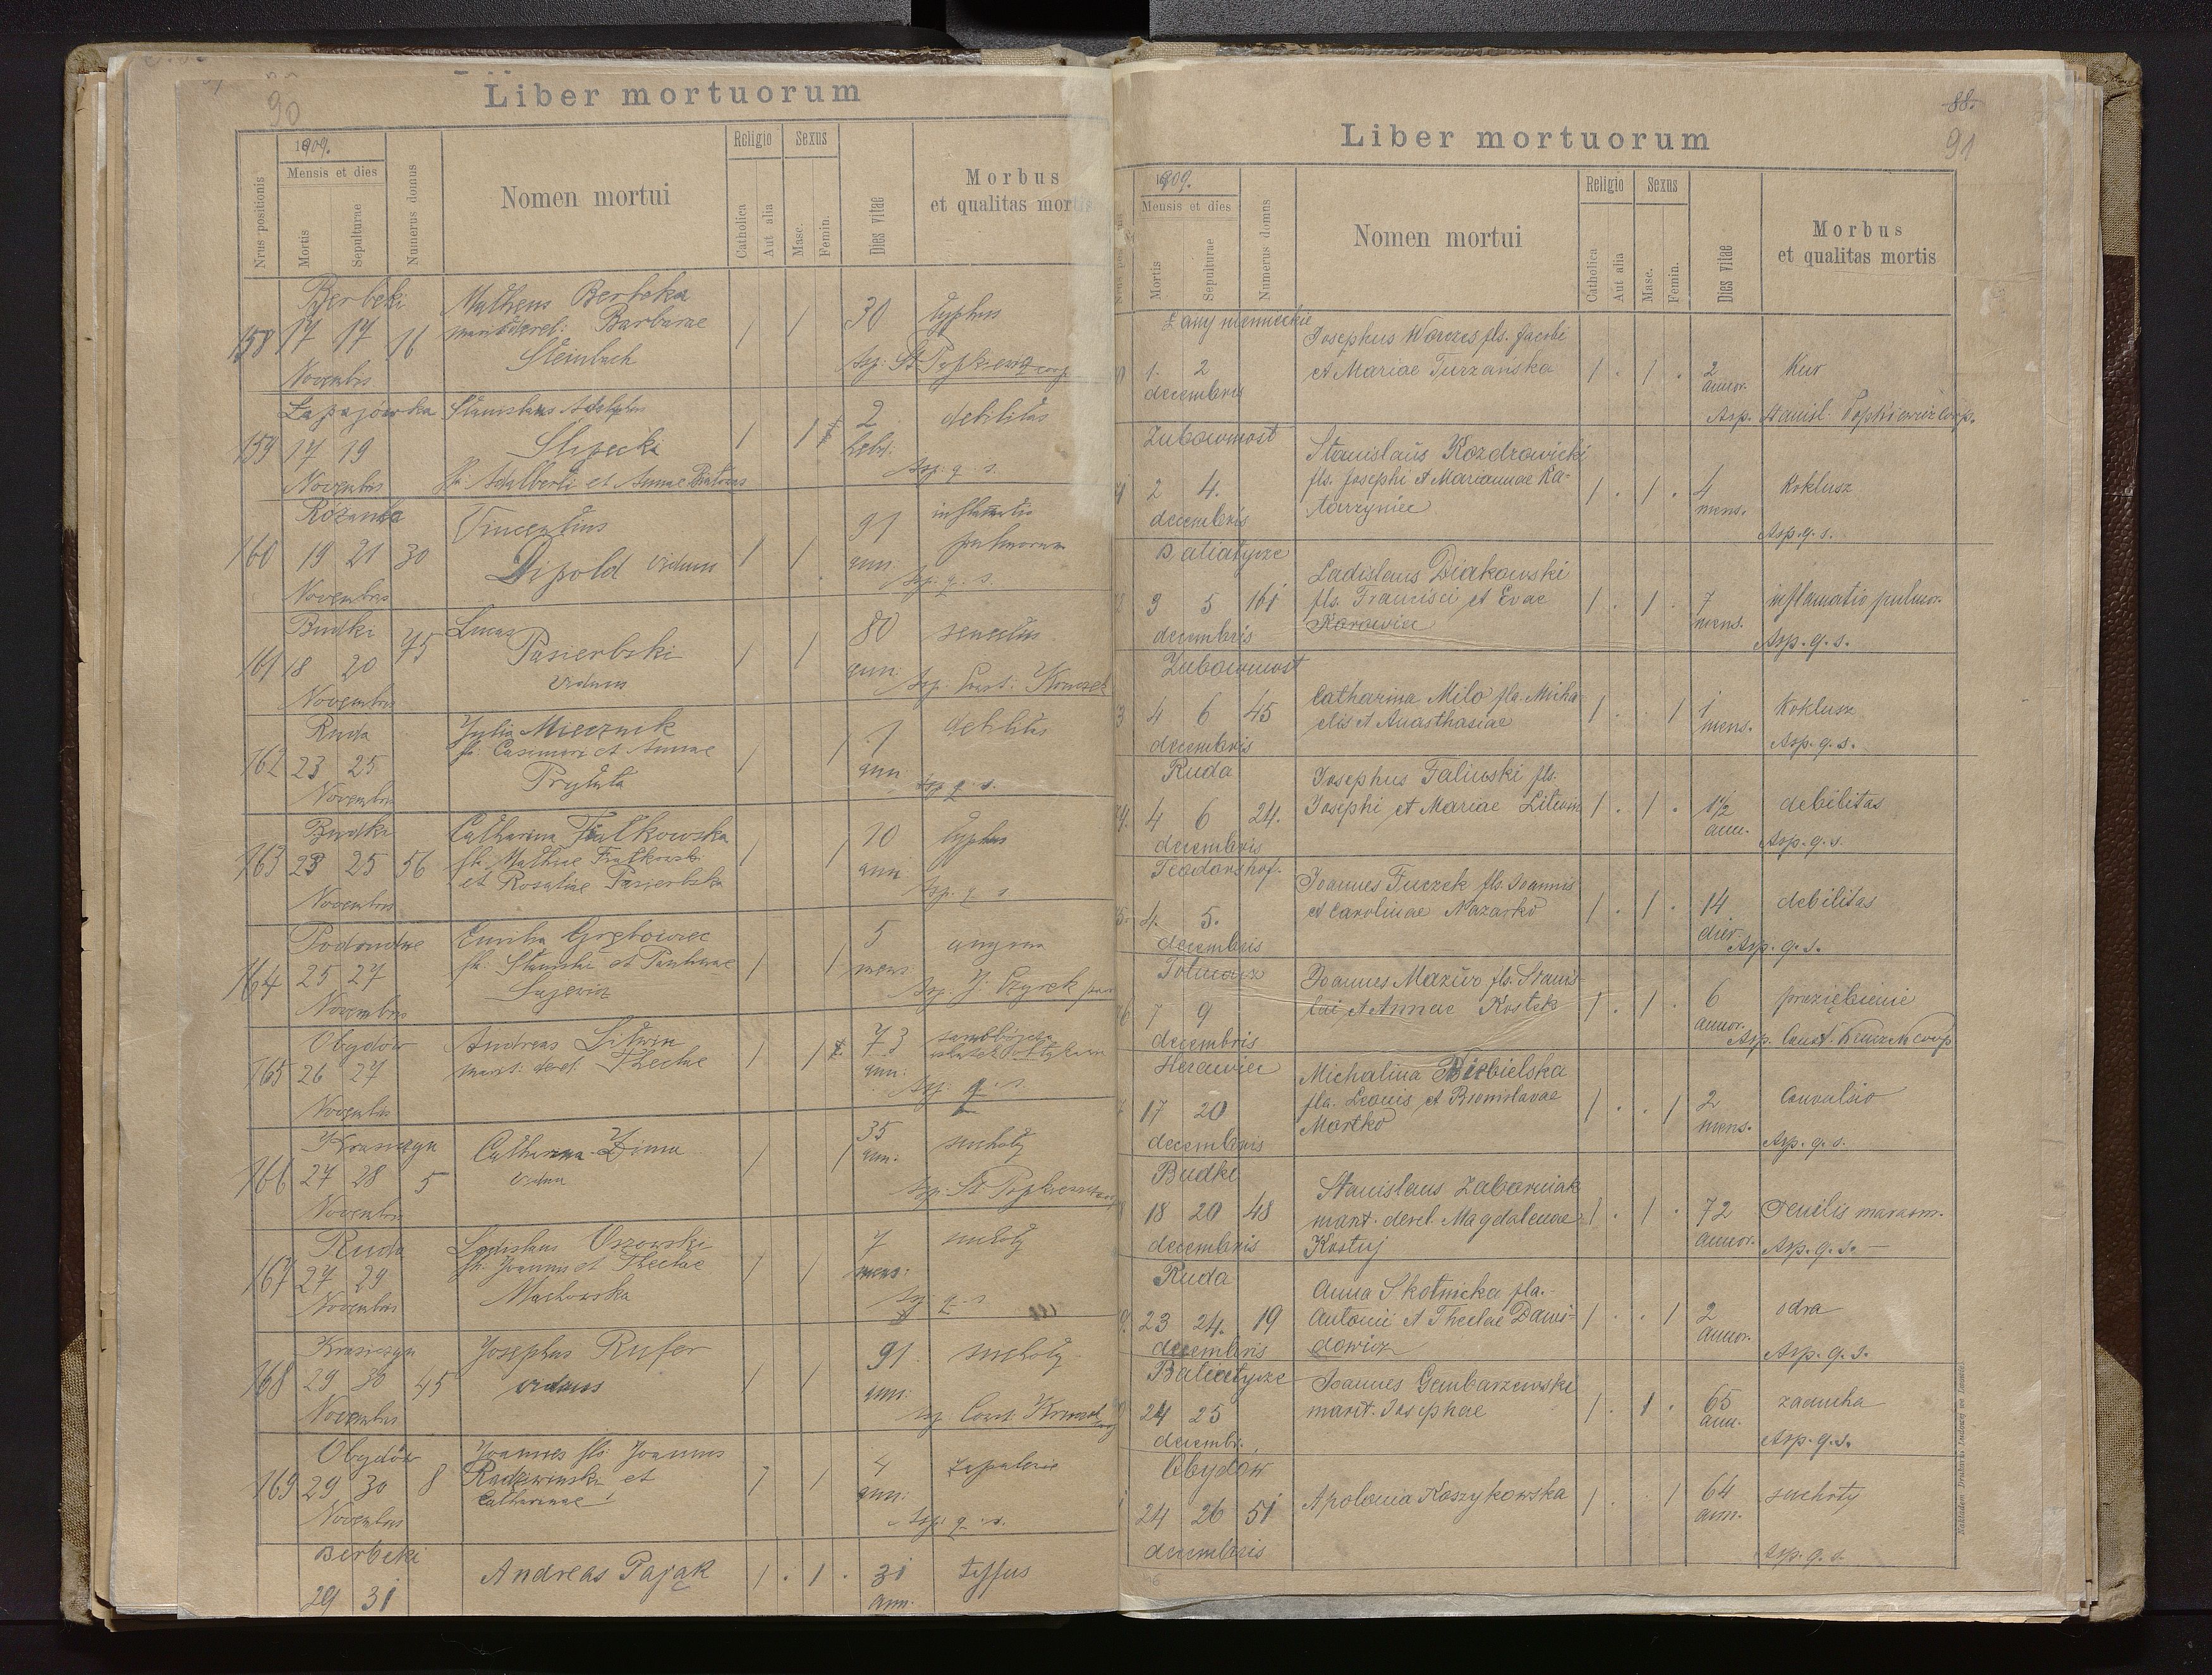 90
Liber mortuorum
1909.
Mensis et dies
Nrus positionis
Mortis
Sepulturae
Numerus domus
Nomen mortui
Religio
Catholica
Aut alia
Sexus
Masc.
Femin.
Dies vitae
Morbus
et qualitas mortis
Berbeki
158 17 17 16
Novembris
Matheus Berbeka
Barbarae
Steinbach
1 1 30 typhus
Łapajówka
159 17 19
Novembris
Stanislaus Adolphus
Slipecki
fil. Adalberti et Annae
1 1 2
debilitas
Asp. q. s.
160 19 21 30
Novembris
Vincentius
Dipold viduus
1 1 91
ann.
inflamatio
pulmonum
Asp. q. s.
Budki
161 18 20 75
Novembris
Lucas
Pasierbski
viduus
1 1 80
ann.
senectus
Ruda
162 23 25
Novembris
Julia Miecznik
fil. Casimiri et Annae
Prytuła
1 1 1
ann.
debilitas
Asp. q. s.
Budki
163 23 25 56
Novembris
Catharina Fiałkowska
et Rosaliae Pasierbska
1 1 10
ann.
typhus
Asp. q. s.
164 25 27
Novembris
Emilia Grębowiec
1 1 5
mens.
angina
Obydów
165 26 27
Novembris
Andreas Litwin
marit. derel. Theclae
1 1 73
ann.
Asp. q. s.
Krasiczyn
166 27 28 5
Novembris
Catharina Zima
vidua
1 1 35
ann.
suchoty
Ruda
167 27 29
Novembris
Ladislaus Uszowski
fil. Joannis et Theclae
Machowska
1 1 7
mens.
suchoty
Asp. q. s.
Krasiczyn
168 29 30 45
Novembris
Josephus Rufer
viduus
1 1 91
ann.
suchoty
Obydów
169 29 30 8
Novembris
Joannes fil. Joannis
Radziwinski et
Catharinae
1 1 4
ann.
zapalenie
Asp. q. s.
Berbeki
29 31
Andreas Pająk
1 . 1 . 31
ann.
tyffus
88.
91
Liber mortuorum
1909.
Mensis et dies
Mortis
Sepulturae
Numerus domus
Nomen mortui
Religio
Catholica
Aut alia
Sexus
Masc.
Femin.
Dies vitae
Morbus
et qualitas mortis
Łany niemieckie
1. 2
decembris
Josephus Worczes fls. Jacobi
et Mariae Turzańska
1 . 1 . 2
annor.
Kur
Asp. Stanisl. Popkiewicz coop.
Zubowmost
2 4.
decembris
Stanislaus Kozdrowicki
fls. Josephi et Mariannae Ka-
tarzyniec
1 . 1 . 4
mens.
Koklusz
Asp. q. s.
Batiatycze
3 5 161
decembris
Ladislaus Diakowski
fls. Francisci et Evae
Karowiec
1 . 1 . 7
mens.
inflamatio pulmon.
Asp. q. s.
Zubowmost
4 6 45
decembris
Catharina Milo fla. Micha-
elis et Anasthasiae
1 . . 1 1
mens.
Koklusz
Asp. q. s.
Ruda
4 6 24.
decembris
Josephus Faliński fls.
Josephi et Mariae Litwin
1 . 1 . 1½
ann.
debilitas
Asp. q. s.
Teodorshof.
4. 5.
decembris
Joannes Fuczek fls. Joannis
et Carolinae Nazarko
1 . 1 . 14
dier.
debilitas
Asp. q. s.
7 9
decembris
Joannes Mazur fls. Stanis-
lai et Annae Kostek
1 . 1 . 6
annor.
przeziębienie
17 20
decembris
Michalina
fla. Leonis et Bronislavae
Martko
1 . . 1 2
mens.
Convulsio
Asp. q. s.
Budki
18 20 48
decembris
Stanislaus Zaborniak
marit. derel. Magdalenae
Kostuj
1 . 1 . 72
annor.
senilis marasm.
Asp. q. s.
Ruda
23 24. 19
decembris
Anna Skotnicka fla.
Antonii et Theclae Dawi-
dowicz
1 . . 1 2
annor.
odra
Asp. q. s.
Batiatycze
24 25
decembr.
Joannes Gembarzewski
marit. Josephae
1 . 1 . 65
ann.
zaducha
Asp. q. s.
Obydów
24 26 51
decembris
Apolonia Koszykowska
1 . . 1 64
ann.
suchoty
Asp. q. s.
Nakładem Drukarni Ludowej we Lwowie.